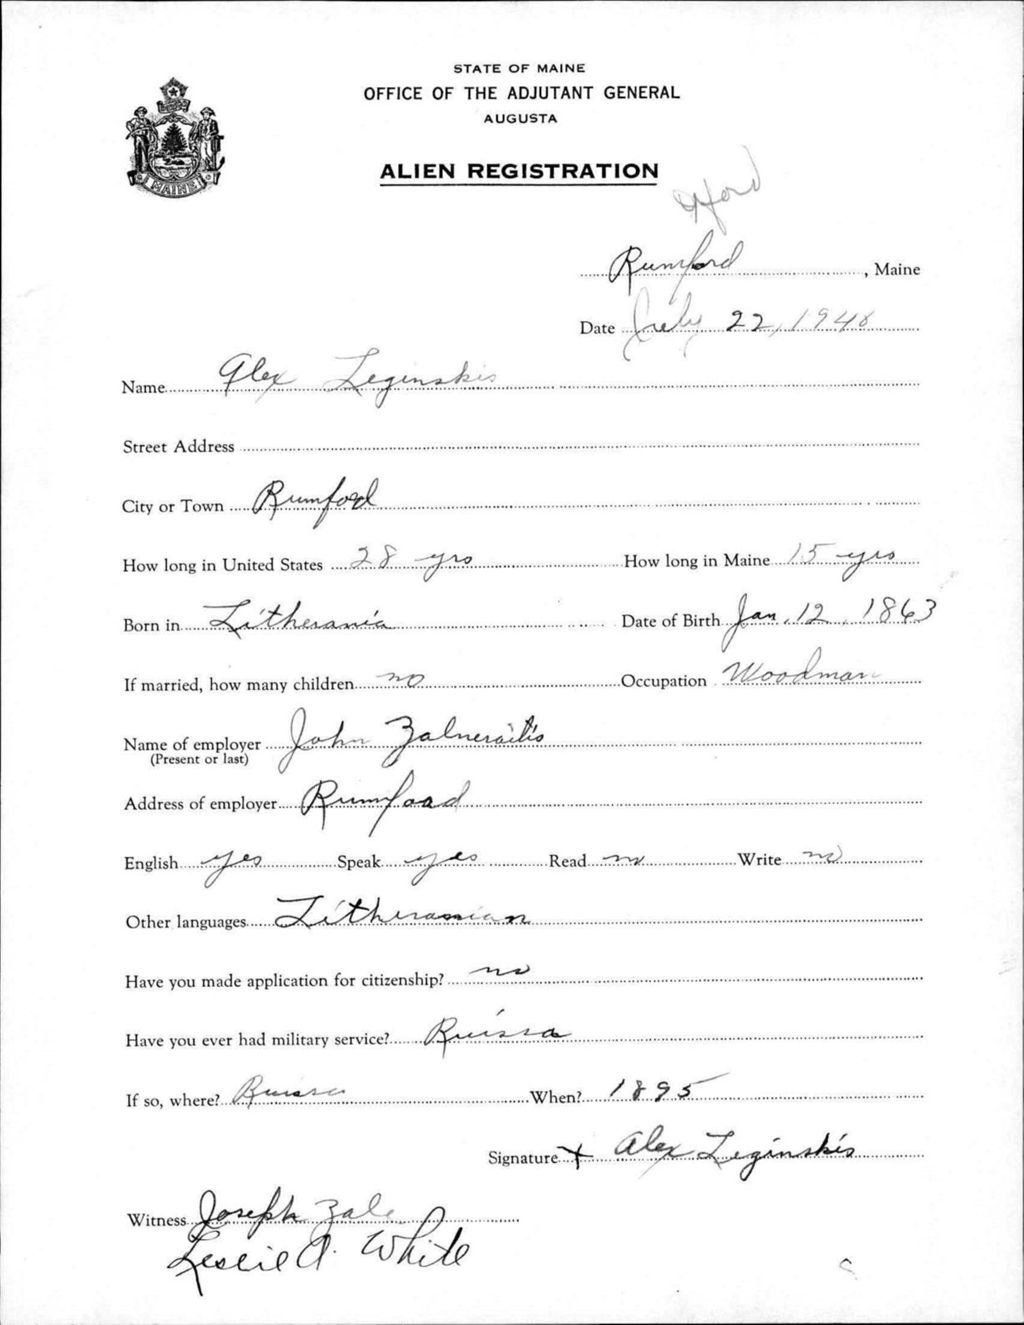 STATE OF MAINE
OFFICE OF THE ADJUTANT GENERAL
AUGUSTA
ALIEN REGISTRATION
Oxford
Rumford, Maine
Date July 22, 1940
MAINE
Name Alex Leginskis
Street Address
City or Town Rumford
How long in United States 28 yrs How long in Maine 15 yrs
Born in Litherania Date of Birth Jan. 12, 1863
If married, how many children no Occupation Woodman
Name of employer John Zalneraitis
(Present or last)
Address of employer Rumfoad
English yes Speak yes Read no Write no
Other languages Litheranian
Have you made application for citizenship? no
Have you ever had military service? Ruissa
If so, where? Ruissa When? 1895
Signature X Alex Leginskis
Witness Joseph Zale
Leslie A. White